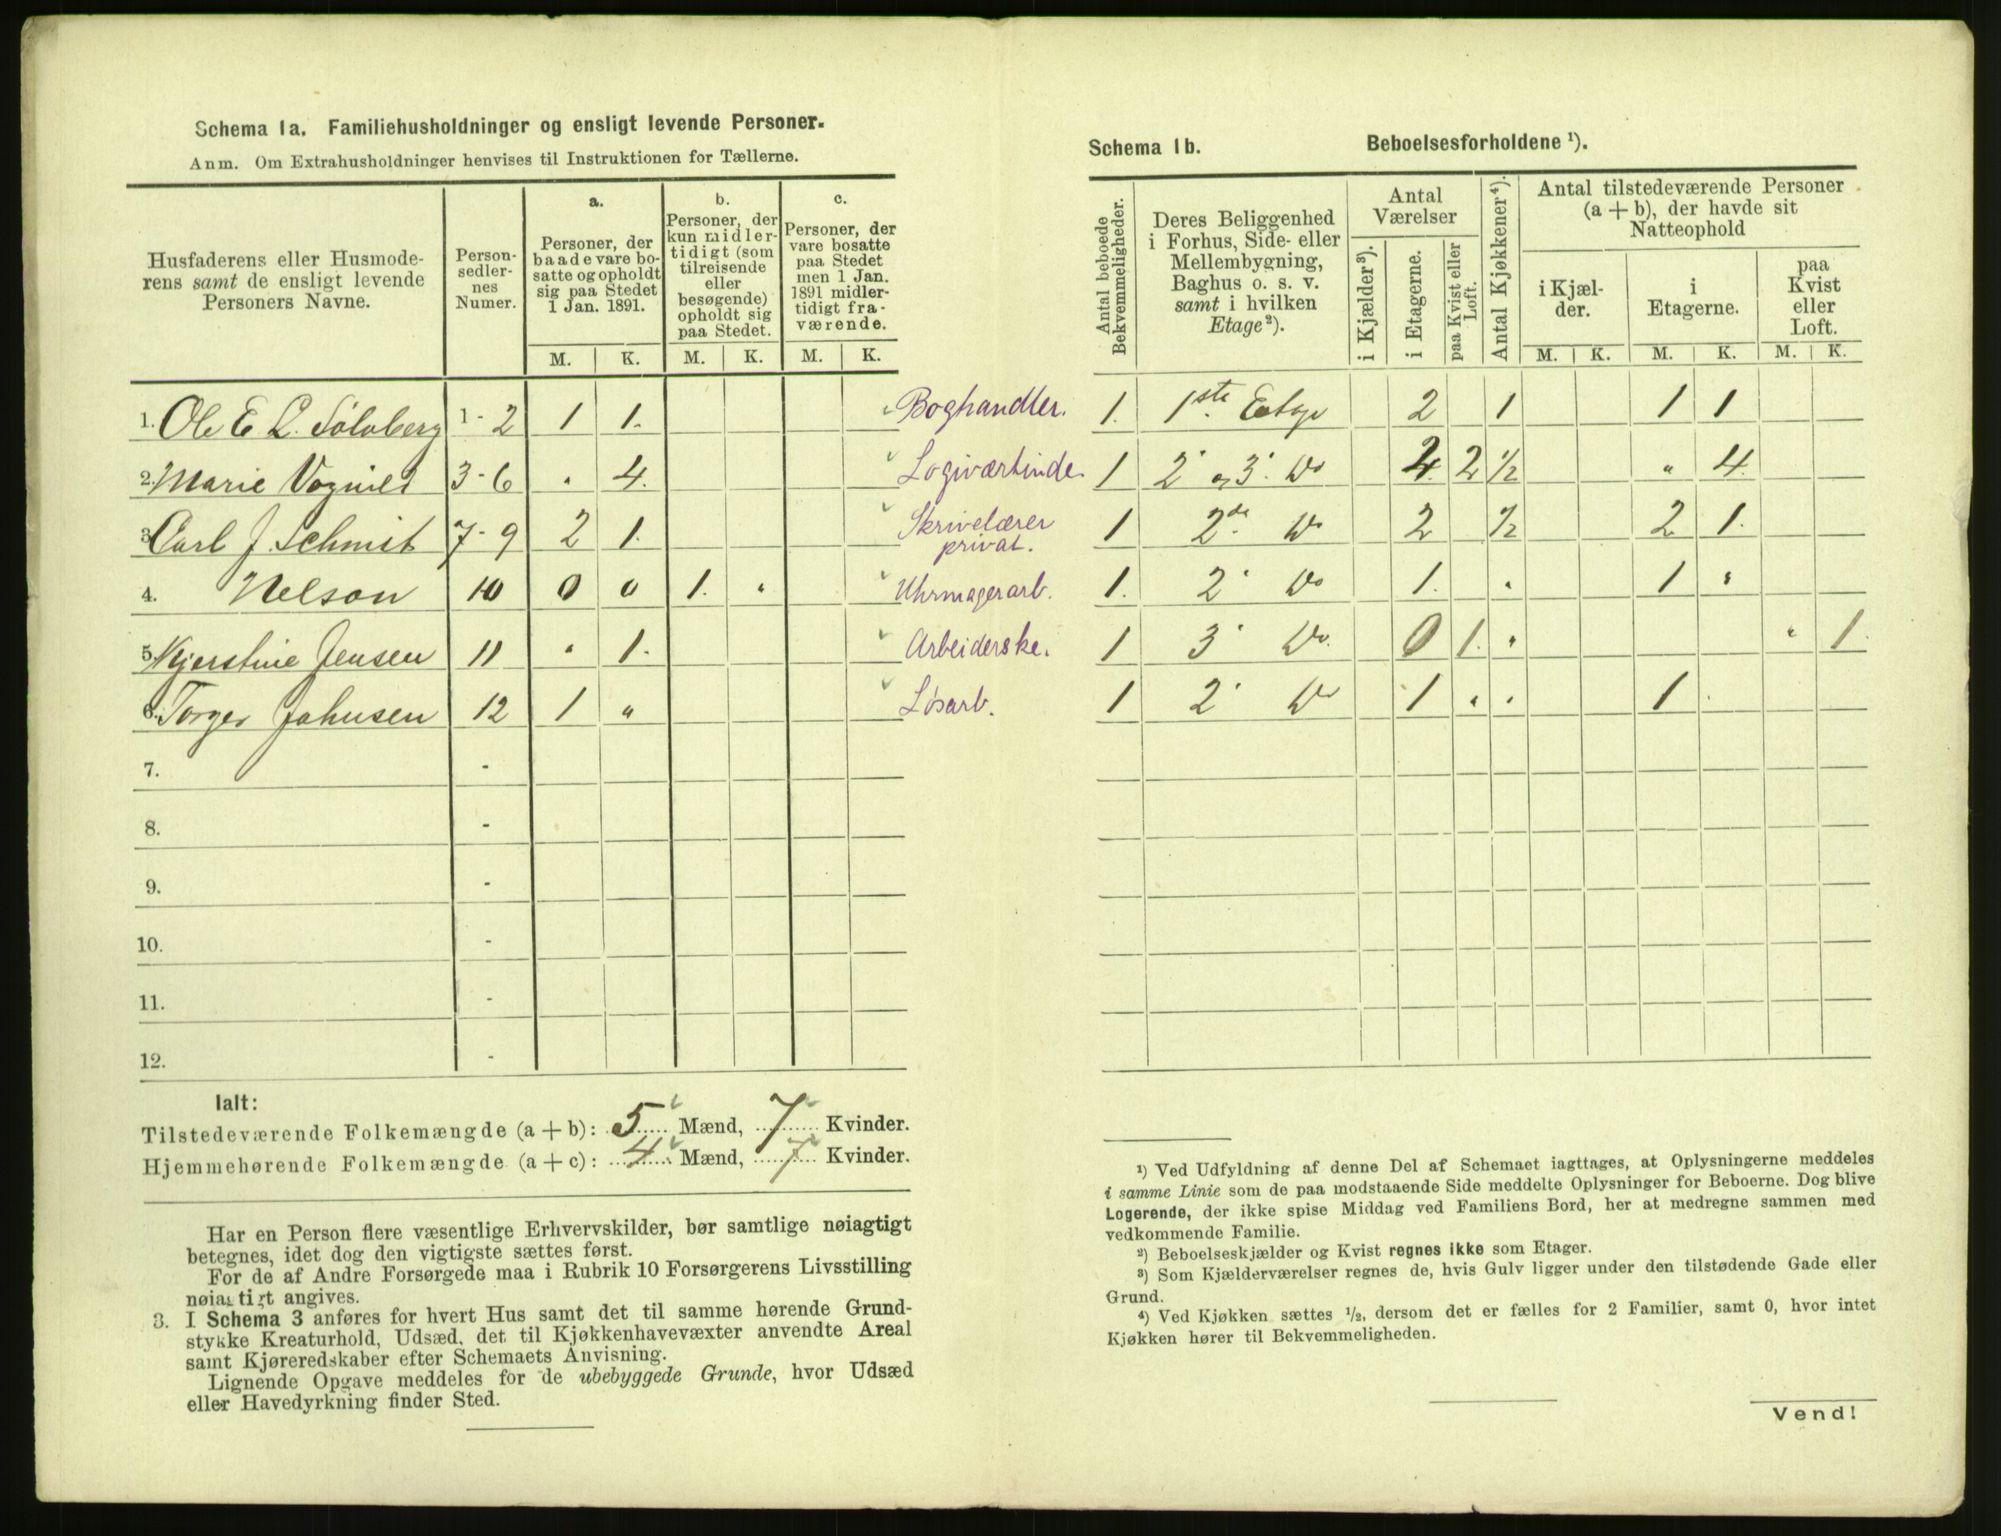 Schema 1a. Familiehusholdninger og ensligt levende Personer.
Anm. Om Extrahusholdninger henvises til Instruktionen for Tællerne.
Husfaderens eller Husmode-
rens samt de ensligt levende
Personers Navne.
Person-
sedler-
nes
Numer.
a.
Personer, der
baade vare bo-
satte og opholdt
sig paa Stedet
1 Jan. 1891.
M. K.
b.
Personer, der
kun midler-
tidigt (som
tilreisende
eller
besøgende)
opholdt sig
paa Stedet.
M. K.
c.
Personer, der
vare bosatte
paa Stedet
men 1 Jan.
1891 midler-
tidigt fra-
værende.
M. K.
1. Ole E L. Sølvberg 1-2 1 1. Boghandler.
2. Marie Vognild 3-6 " 4. Logiværtinde
3. Carl J. Schmit 7-9 2 1. Skrivelærer
privat.
4. Nelson 10 0 0 1. " Uhrmagerarb.
5. Kjerstine Jensen 11 " 1. Arbeiderske.
6. Torger Johnsen 12 1 " Løsarb.
7. -
8. -
9. -
10. -
11. -
12. -
Ialt:
Tilstedeværende Folkemængde (a + b): 5 Mænd, 7 Kvinder.
Hjemmehørende Folkemængde (a + c): 4 Mænd, 7 Kvinder.
Har en Person flere væsentlige Erhvervskilder, bør samtlige nøiagtigt
betegnes, idet dog den vigtigste sættes først.
For de af Andre Forsørgede maa i Rubrik 10 Forsørgerens Livsstilling
nøiagtigt angives.
3. I Schema 3 anføres for hvert Hus samt det til samme hørende Grund-
stykke Kreaturhold, Udsæd, det til Kjøkkenhavevæxter anvendte Areal
samt Kjøreredskaber efter Schemaets Anvisning.
Lignende Opgave meddeles for de ubebyggede Grunde, hvor Udsæd
eller Havedyrkning finder Sted.
Schema 1b. Beboelsesforholdene ¹).
Antal beboede
Bekvemmeligheder.
Deres Beliggenhed
i Forhus, Side- eller
Mellembygning,
Baghus o. s. v.
samt i hvilken
Etage²).
Antal
Værelser
i Kjælder³).
i Etagerne.
paa Kvist eller
Loft.
Antal Kjøkkener⁴).
Antal tilstedeværende Personer
(a + b), der havde sit
Natteophold
i Kjæl-
der.
M. K.
i
Etagerne.
M. K.
paa
Kvist
eller
Loft.
M. K.
1. 1ste Etage 2 1 1 1
1 2' og 3' Do 4 2 1/2 " 4.
1 2de Do 2 1/2 2 1.
1. 2' Do 1. " 1 "
1 3' Do. 0 1. " " 1.
1 2' Do 1 " " 1
¹) Ved Udfyldning af denne Del af Schemaet iagttages, at Oplysningerne meddeles
i samme Linie som de paa modstaaende Side meddelte Oplysninger for Beboerne. Dog blive
Logerende, der ikke spise Middag ved Familiens Bord, her at medregne sammen med
vedkommende Familie.
²) Beboelseskjælder og Kvist regnes ikke som Etager.
³) Som Kjælderværelser regnes de, hvis Gulv ligger under den tilstødende Gade eller
Grund.
⁴) Ved Kjøkken sættes ½, dersom det er fælles for 2 Familier, samt 0, hvor intet
Kjøkken hører til Bekvemmeligheden.
Vend!